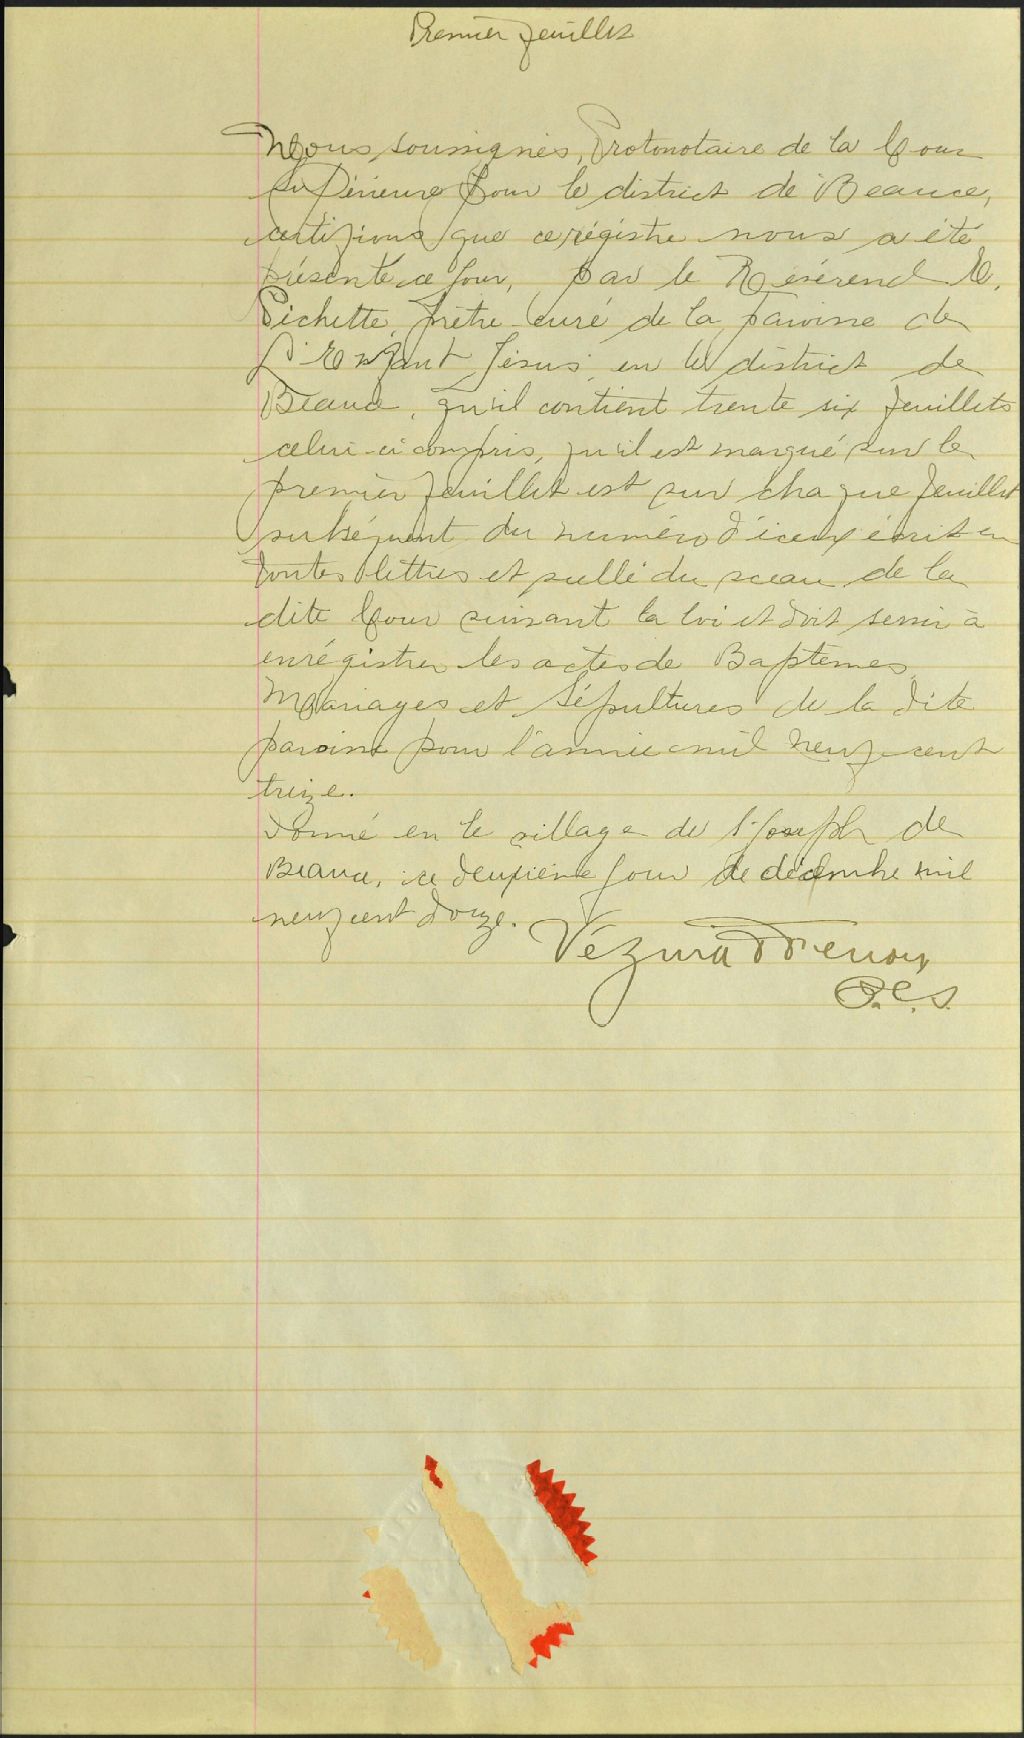 Premier feuillet
Nous soussignés, Protonotaire de la Cour
Supérieure pour le district de Beauce,
certifions que ce régistre nous a été
présenté ce jour, par le Révérend
Pichette, prêtre curé de la paroisse de
L'Enfant Jésus en le district de
Beauce, qu'il contient trente six feuillets
celui-ci compris, qu'il est marqué sur le
premier feuillet et sur chaque feuillet
subséquent du numéro d'iceux écrit en
toutes lettres et scellé du sceau de la
dite Cour suivant la loi et doit servir à
enrégistrer les actes de Baptêmes
Mariages et Sépultures de la dite
paroisse pour l'année mil neuf cent
treize.
Donné en le village de St Joseph de
Beauce, ce deuxième jour de décembre mil
neuf cent douze.
Vézina
P.C.S.